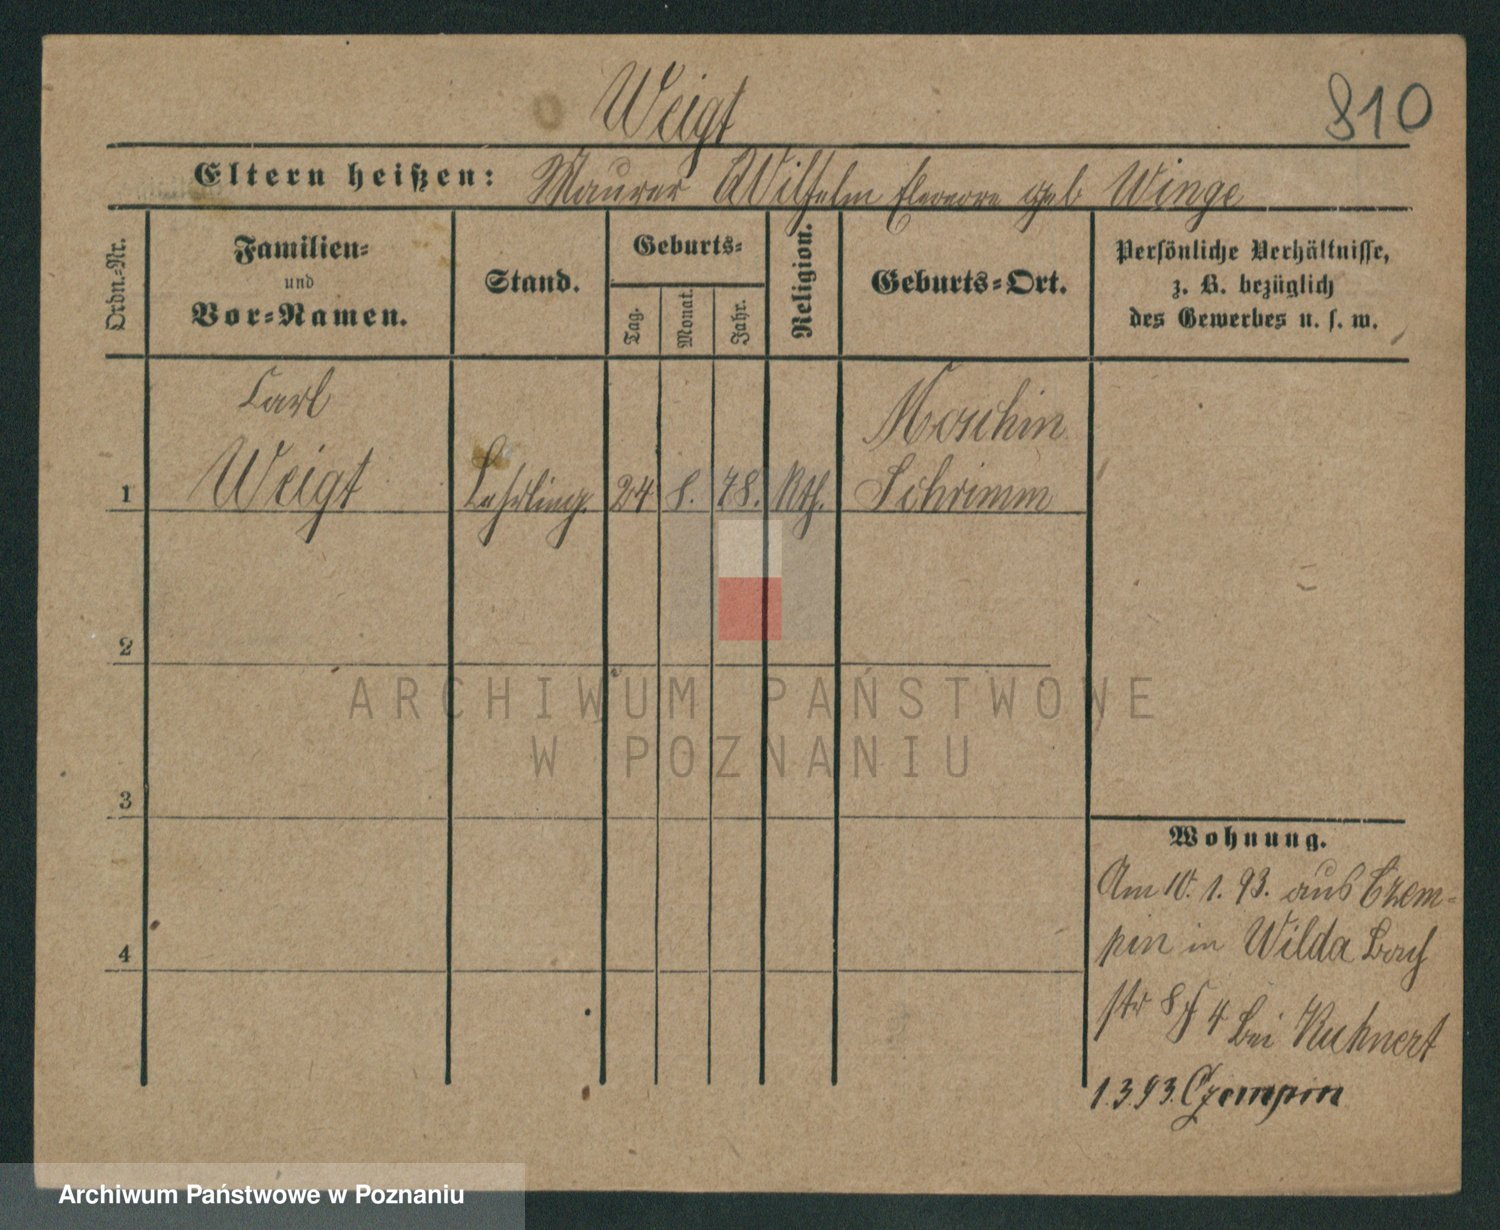 Weigt
810
Eltern heißen: Maurer Wilhelm Eleonore geb Winge
Ordn.-Nr.
Familien-
und
Vor-Namen.
Stand.
Geburts-
Tag.
Monat.
Jahr.
Religion.
Geburts-Ort.
Persönliche Verhältnisse,
z. B. bezüglich
des Gewerbes u. s. w.
Carl
Moschin
1 Weigt Lehrling. 24 8. 78. Kth. Schrimm
2
ARCHIWUM PAŃSTWOWE
W POZNANIU
3
4
Wohnung.
Am 10. 1. 93. aus Czem-
pin in Wilda Bach
str 8 4 bei Kuhnert
1.3.93. Czempin
Archiwum Państwowe w Poznaniu